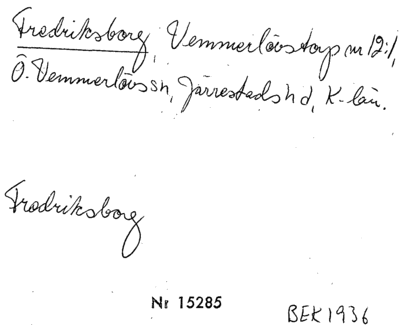 Fredriksborg, Vemmerlövstorp nr 12:1,
Ö. Vemmerlövs sn, Järrestads hd, K-län.
Fredriksborg
Nr 15285
BEK 1936